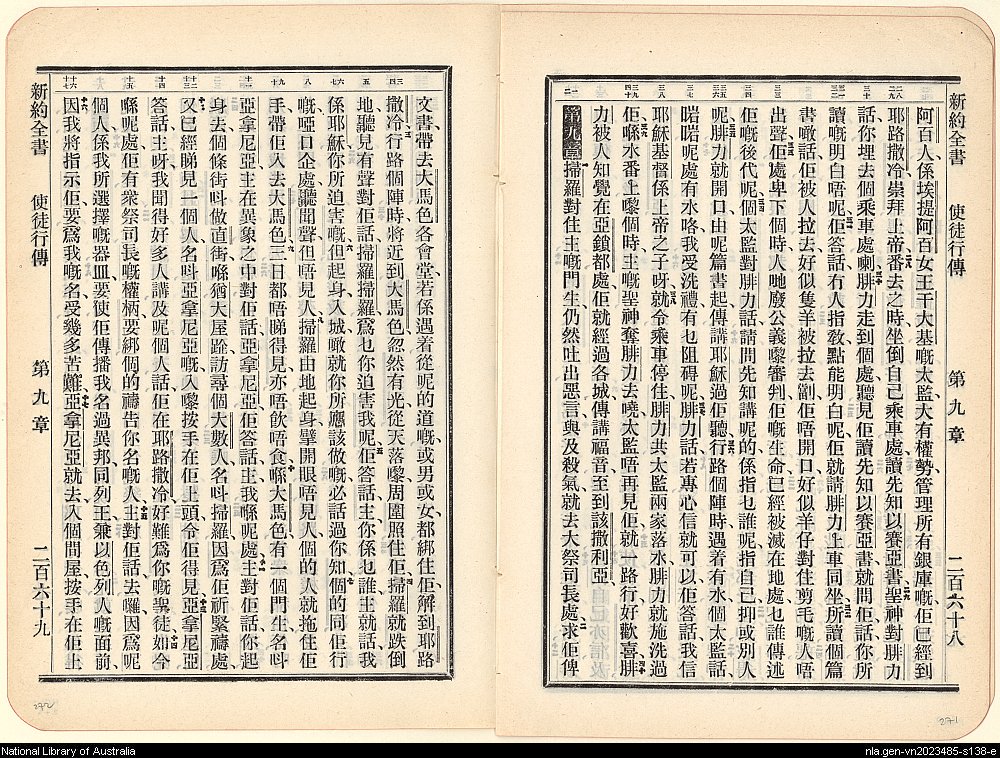 新約全書 使徒行傳 第九章 二百六十八
阿百人係埃提阿百女王干大基嘅太監大有權勢管理所有銀庫嘅佢已經到
耶路撒冷崇拜上帝番去之時坐倒自己乘車處讀先知以賽亞書聖神對腓力
話你埋去個乘車處喇腓力走到個處聽見佢讀先知以賽亞書就問佢話你所
讀嘅明白唔呢佢答話有人指敎點能明白呢佢就請腓力上車同坐所讀個篇
書噉話佢被人拉去好似隻羊被拉去劏佢唔開口好似羊仔對住剪毛嘅人唔
出聲佢處卑下個時人哋廢公義嚟審判佢嘅生命已經被滅在地處乜誰傳述
佢嘅後代呢個太監對腓力話請問先知講呢的係指乜誰呢指自己抑或別人
呢腓力就開口由呢篇書起傳講耶穌過佢聽行路個陣時遇着有水個太監話
啱啱呢處有水咯我受洗禮有乜阻碍呢腓力話若專心信就可以佢答話我信
耶穌基督係上帝之子呀就令乘車停住腓力共太監兩家落水腓力就施洗過
佢喺水番上嚟個時主嘅聖神奪腓力去嘵太監唔再見佢就一路行好歡喜腓
力被人知覺在亞鎖都處佢就經過各城傳講福音至到該撒利亞
第九章掃羅對住主嘅門生仍然吐出惡言與及殺氣就去大祭司長處求佢俾
文書帶去大馬色各會堂若係遇着從呢的道嘅或男或女都綁住佢解到耶路
撒冷行路個陣時將近到大馬色忽然有光從天落嚟周圍照住佢掃羅就跌倒
地聽見有聲對佢話掃羅掃羅爲乜你迫害我呢佢答話主你係乜誰主就話我
係耶穌你所迫害嘅但起身入城噉就你所應該做嘅必話過你知個的同佢行
嘅啞口企處聽聞聲但唔見人掃羅由地起身擘開眼唔見人個的人就拖住佢
手帶佢入去大馬色三日都唔睇得見亦唔飲唔食喺大馬色有一個門生名呌
亞拿尼亞主在異象之中對佢話亞拿尼亞佢答話主我喺呢處主對佢話你起
身去個條街呌做直街喺猶大屋跲訪尋個大數人名呌掃羅因爲佢祈緊禱處
又已經睇見一個人名呌亞拿尼亞嘅入嚟按手在佢上頭令佢得見亞拿尼亞
答話主呀我聞得好多人講及呢個人話佢在耶路撒冷好難爲你嘅聖徒如今
喺呢處佢有衆祭司長嘅權柄要綁個的禱告你名嘅人主對佢話去囉因爲呢
個人係我所選擇嘅器皿要使佢傳播我名過異邦同列王兼以色列人嘅面前
因我將指示佢要爲我嘅名受幾多苦難亞拿尼亞就去入個間屋按手在佢上
新約全書 使徒行傳 第九章 二百六十九
271
272
National Library of Australia
nla.gen-vn2023485-s138-e